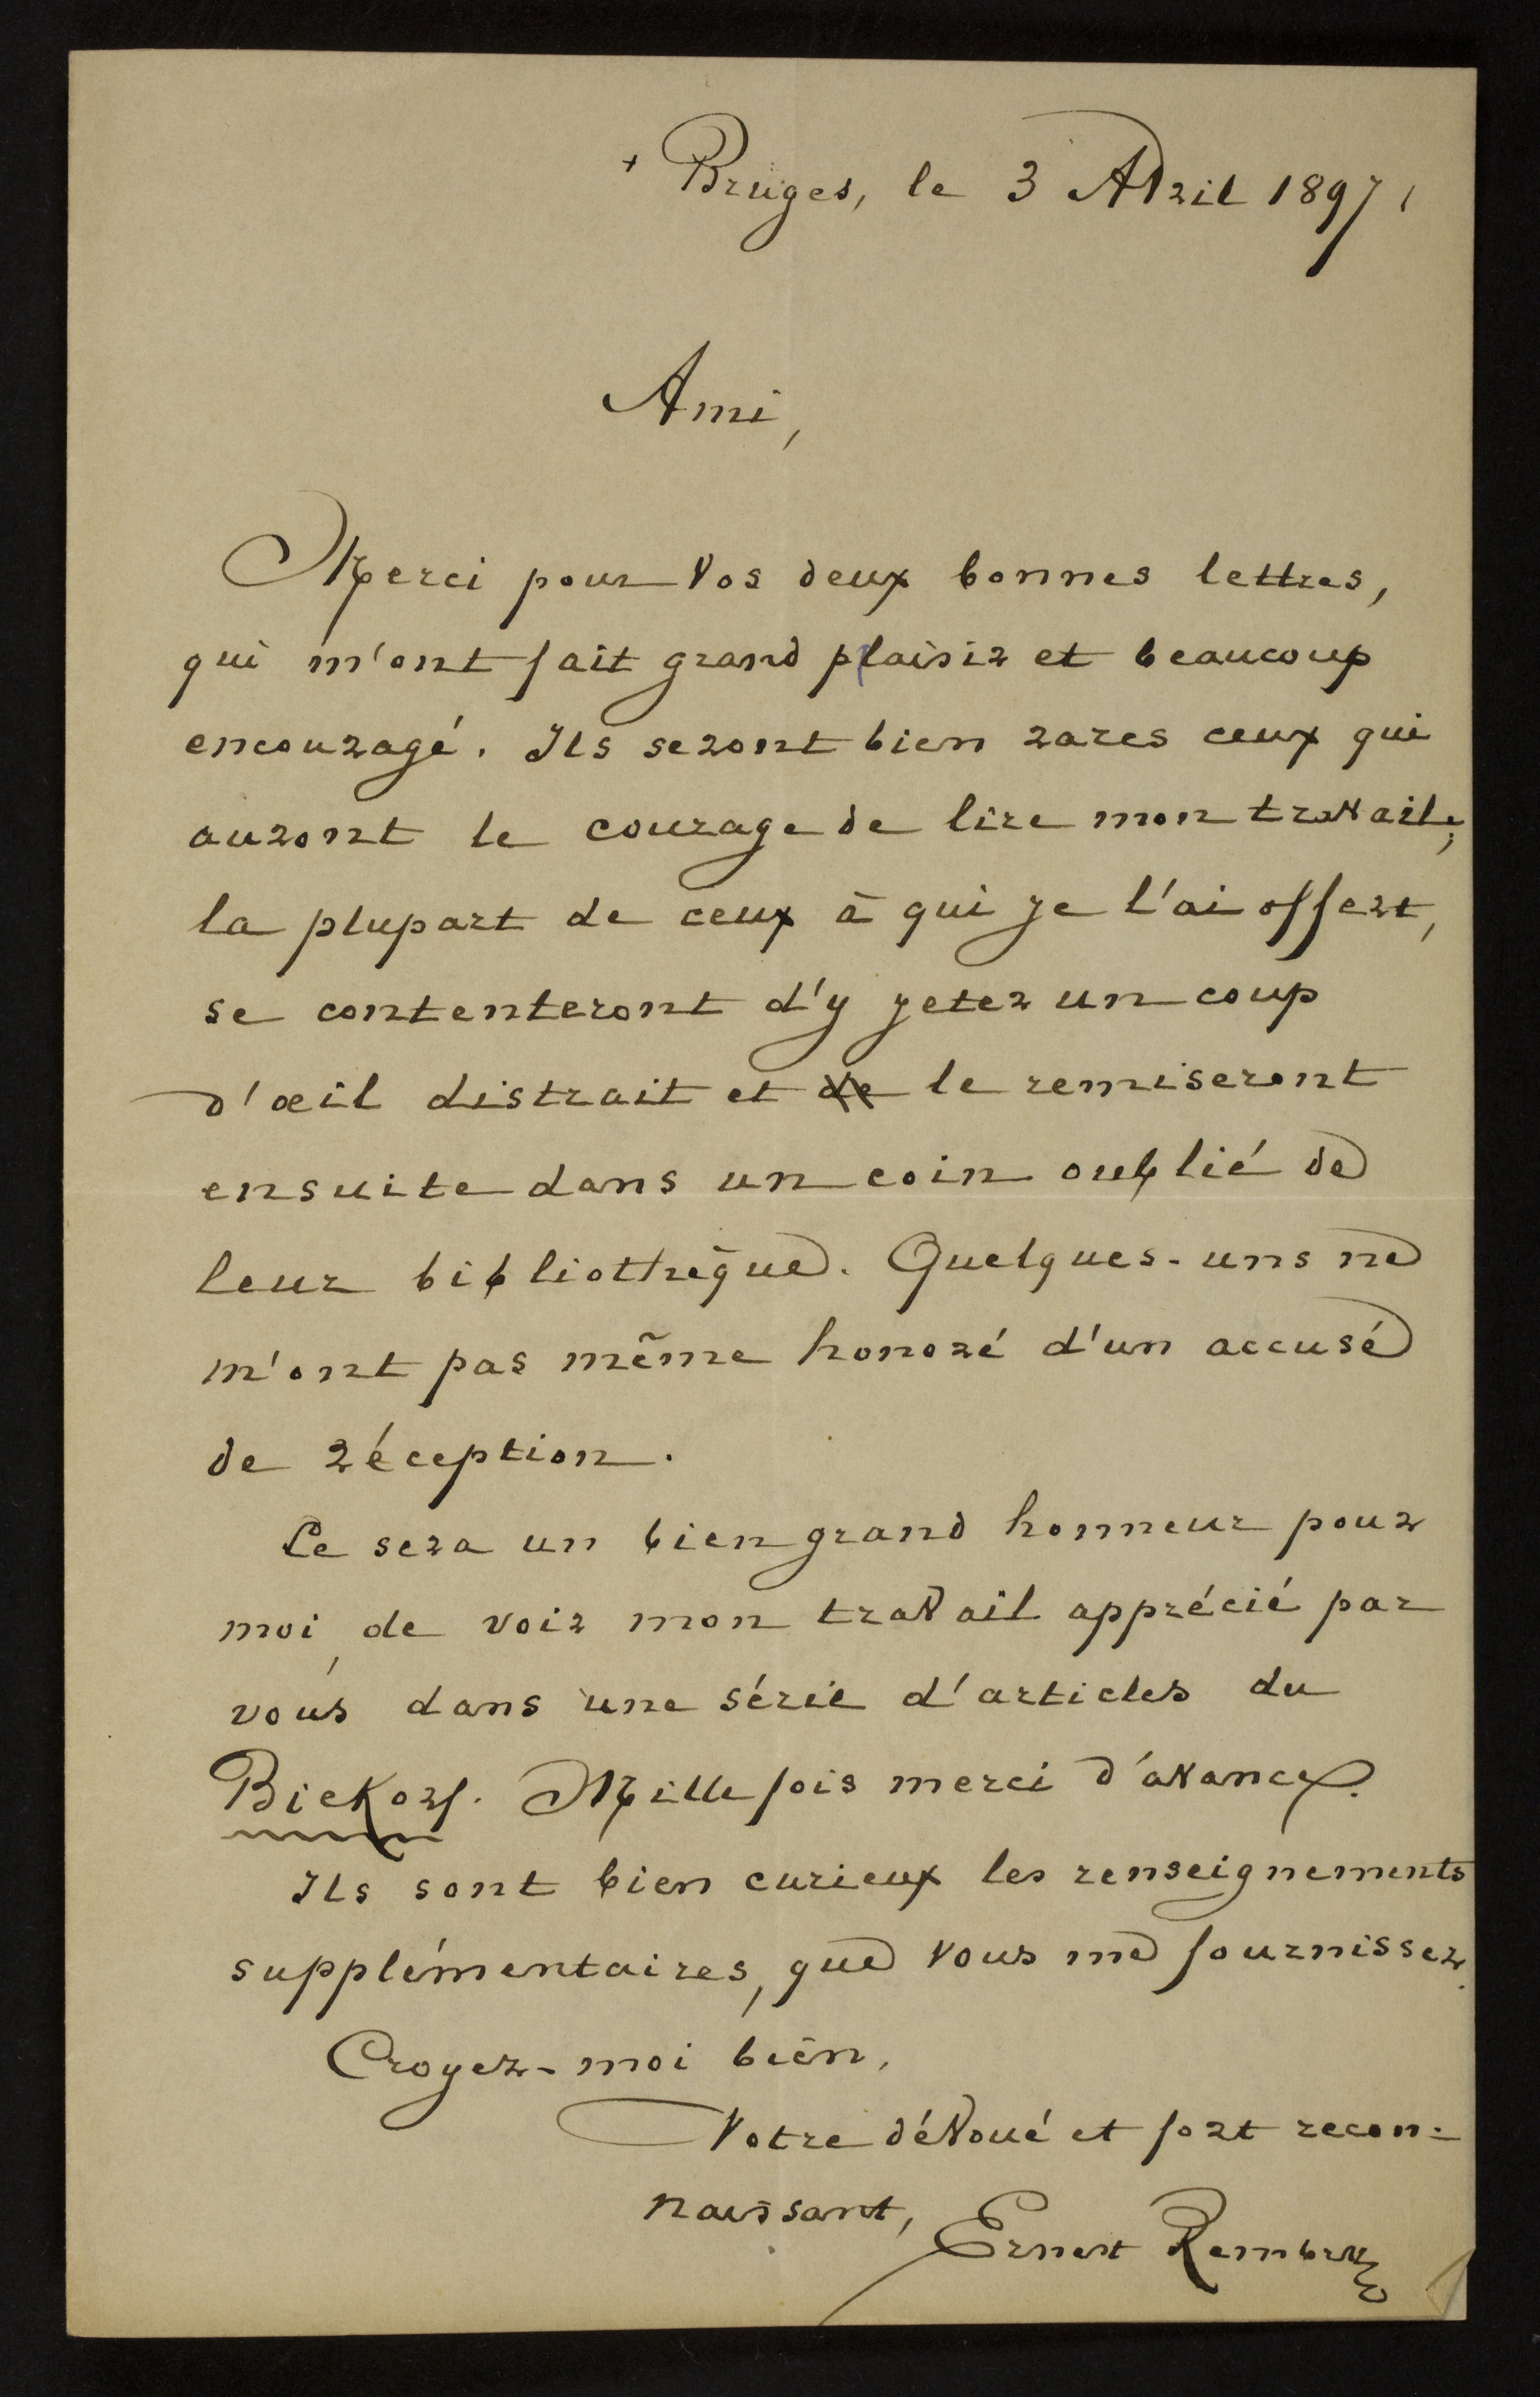 + Bruges, le 3 Avril 1897.
Ami,
Merci pour vos deux bonnes lettres,
qui m'ont fait grand plaisir et beaucoup
encouragé. Ils seront bien rares ceux qui
auront le courage de lire mon travail;
la plupart de ceux à qui je l'ai offert,
se contenteront d'y jeter un coup
d'œil distrait et de le remiseront
ensuite dans un coin oublié de
leur bibliothèque. Quelques-uns ne
m'ont pas même honoré d'un accusé
de réception.
Ce sera un bien grand honneur pour
moi, de voir mon travail apprécié par
vous dans une série d'articles du
Biekorf. Mille fois merci d'avance.
Ils sont bien curieux les renseignements
supplémentaires, que vous me fournissez.
Croyez-moi bien,
Votre dévoué et fort recon-
naissant, Ernest Rembry